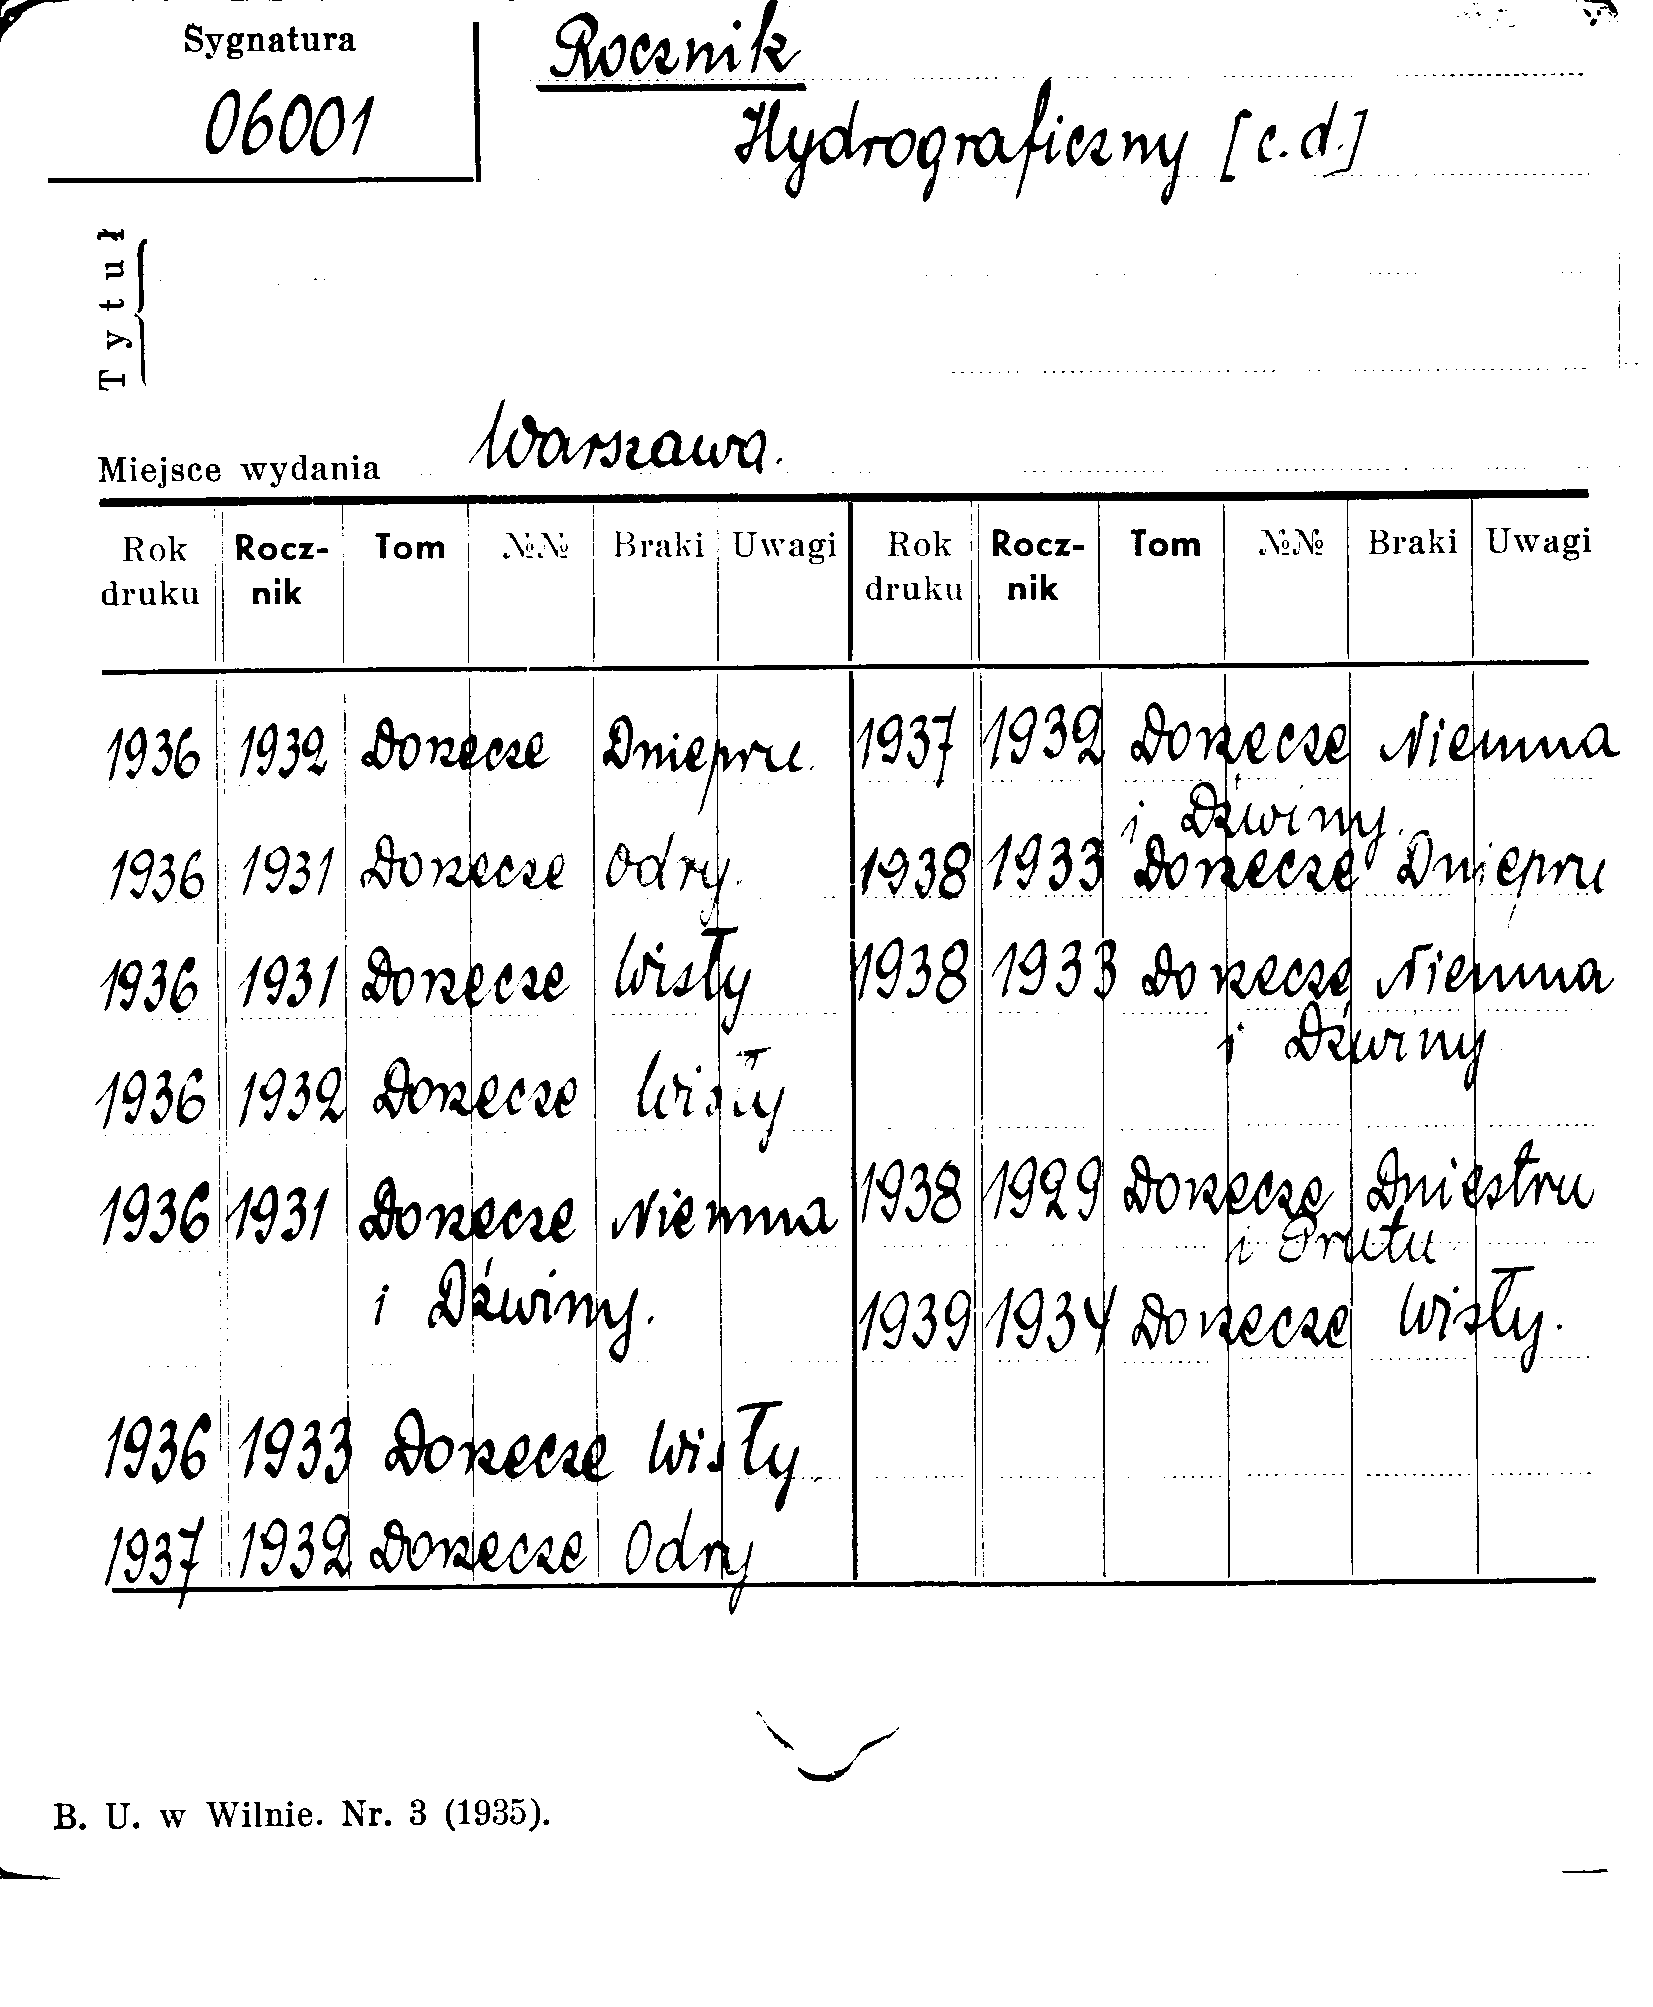 Sygnatura
06001
Rocznik
Hydrograficzny [c.d.]
Tytuł
Miejsce wydania Warszawa.
Rok druku Rocz-nik Tom №№ Braki Uwagi Rok druku Rocz-nik Tom №№ Braki Uwagi
1936 1932 Dorzecze Dniepru.
1936 1931 Dorzecze Odry.
1936 1931 Dorzecze Wisły
1936 1932 Dorzecze Wisły
1936 1931 Dorzecze Niemna
i Dźwiny.
1936 1933 Dorzecze Wisły.
1937 1932 Dorzecze Odry
1937 1932 Dorzecze Niemna
i Dźwiny.
1938 1933 Dorzecze Dniepru
1938 1933 Dorzecze Niemna
i Dźwiny
1938 1929 Dorzecze Dniestru
i Prutu
1939 1934 Dorzecze Wisły.
B. U. w Wilnie. Nr. 3 (1935).